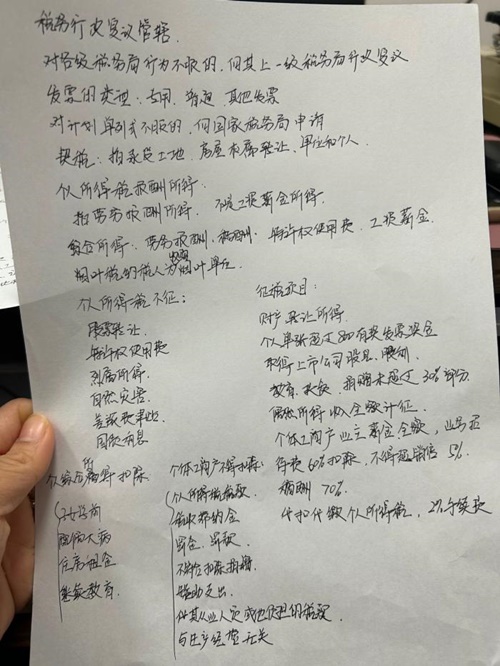 税务行政复议管辖.
对各级税务局行为不服的,向其上一级税务局行政复议
发票的类型:专用、普通、其他发票
对计划单列市不服的,向国家税务局申请
契税:指承受土地、房屋权属转让、单位和个人
个人所得税报酬所得:
指劳务报酬所得.不是工资薪金所得.
综合所得:劳务报酬、稿酬、特许权使用费、工资薪金.
烟叶税纳税人为收购烟叶单位.
个人所得税不征:
股票转让.
特许权使用费
烈属所得.
自然灾害
国债利息
征税项目:
财产转让所得
个人单张超过800有奖发票奖金
取得上市公司股息、
教育、 捐赠未超过30%部分
偶然所得收入全额计征.
个体工商户业主薪金全额,业务招
待费60%扣除,不得超销售5‰
稿酬70%
代扣代缴个人所得税,2%手续费
个人综合所得扣除
子女学前
大病
住房租金
继续教育.
个体工商户不得扣除:
个人所得税税款
罚金、罚款
不符合扣除捐赠
赞助支出
代其从业人员或他人负担的税款
与生产经营无关